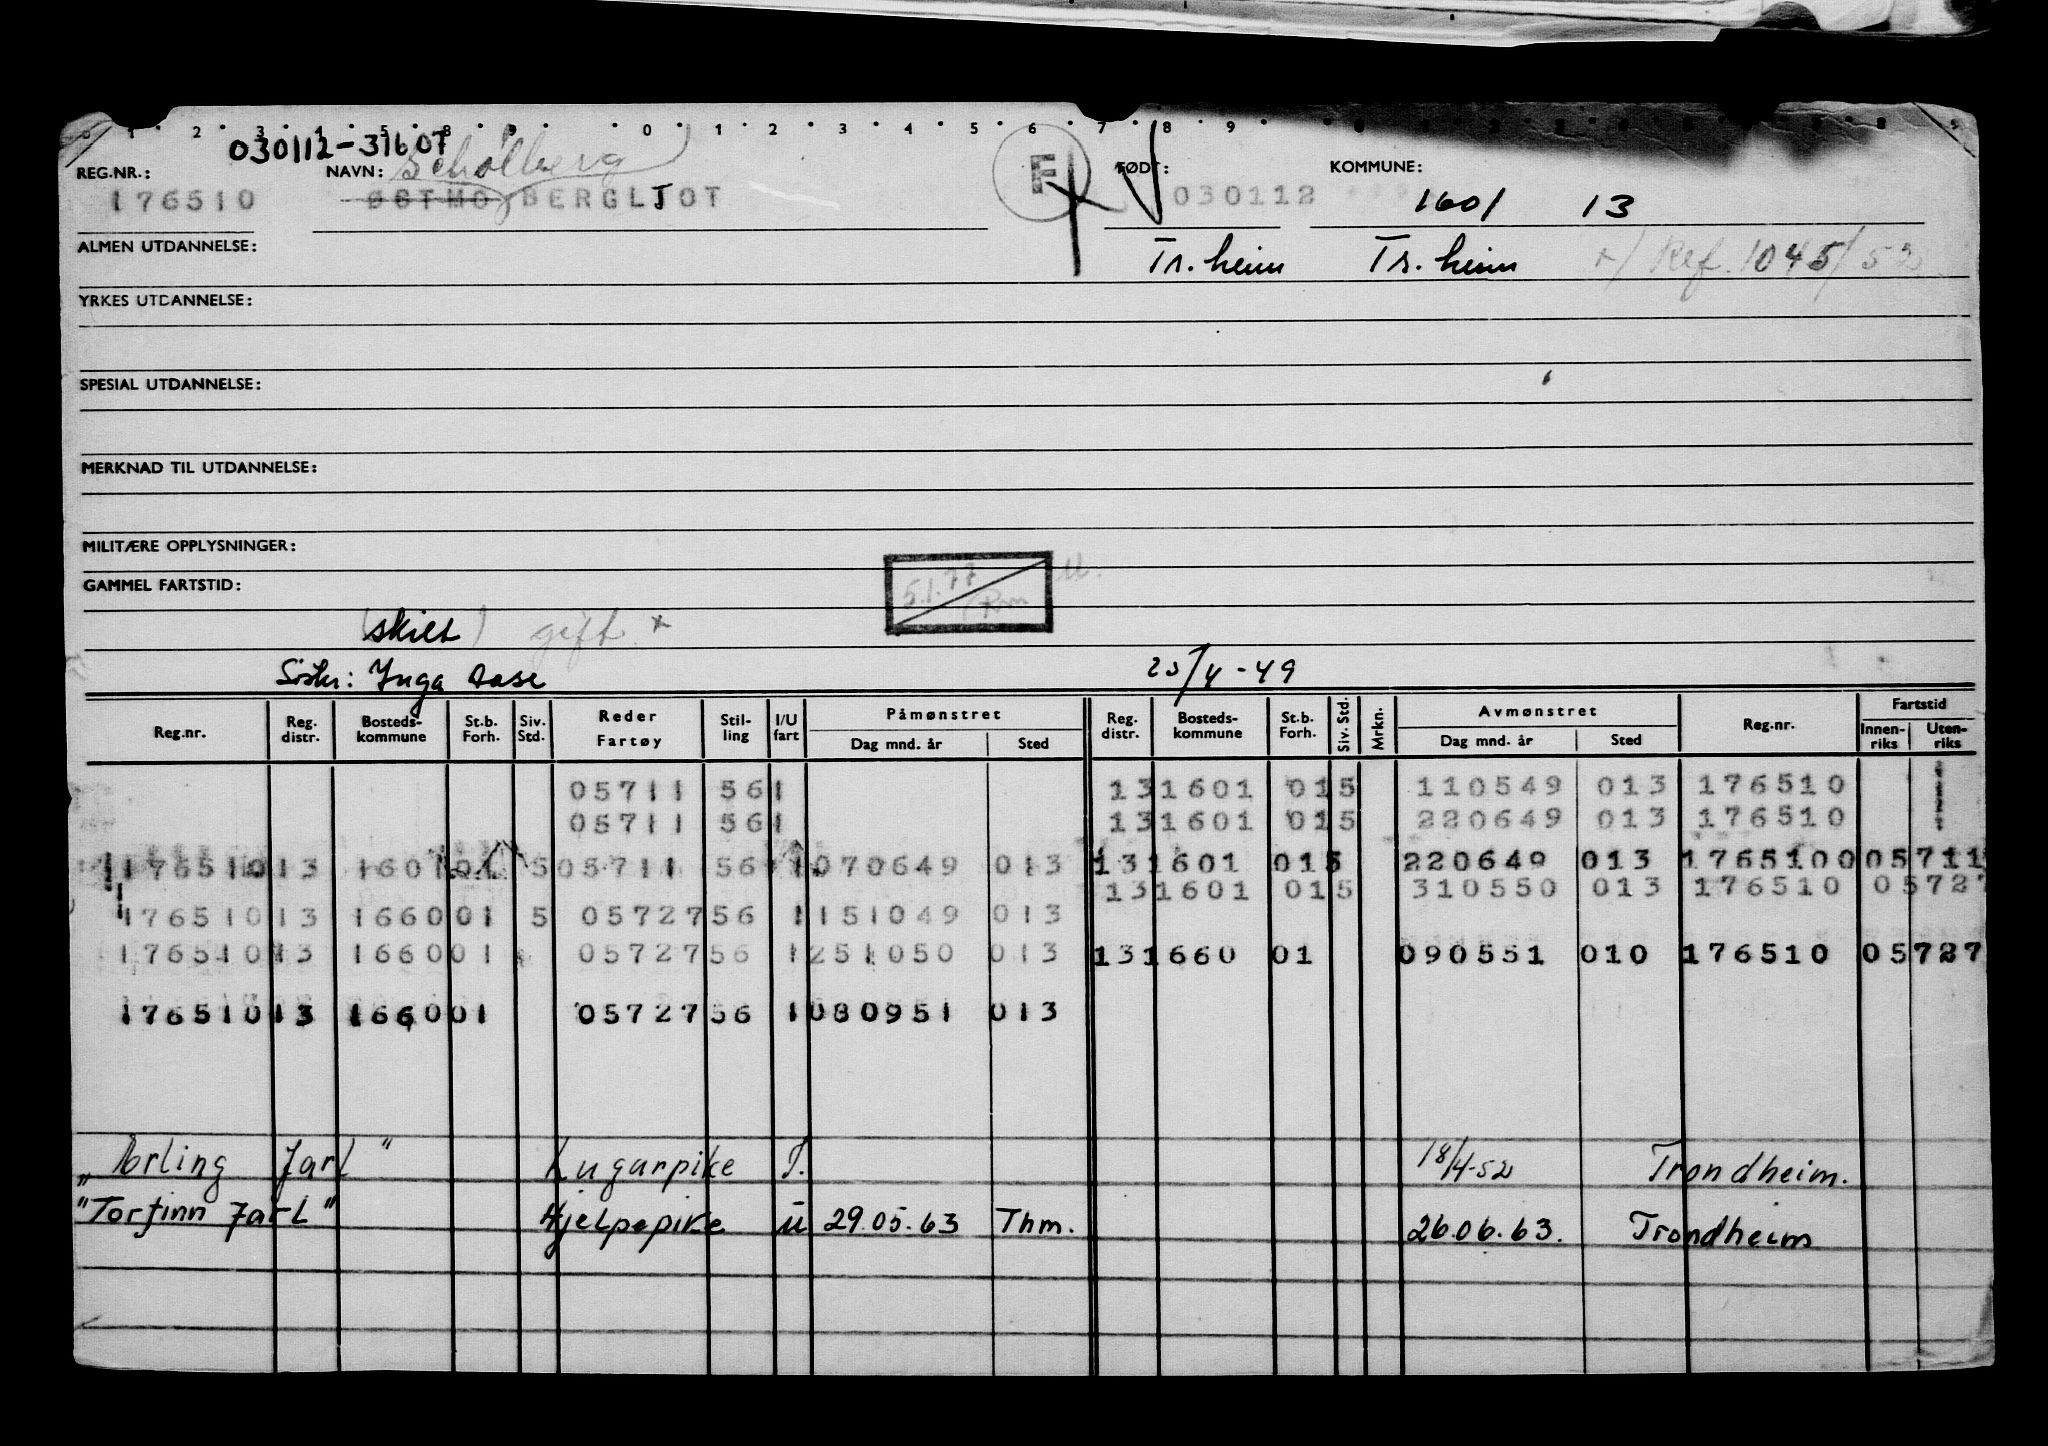 0 1 2 3 4 5 8 9 0 1 2 3 4 5 6 7 8 9
030112-31607
REG.NR.: NAVN: Schølberg F FØDT: KOMMUNE:
176510 ØSTMO BERGLJOT 030112 1601 13
ALMEN UTDANNELSE: Tr.heim Tr.heim +/ Ref. 1045/52
YRKES UTDANNELSE:
SPESIAL UTDANNELSE:
MERKNAD TIL UTDANNELSE:
MILITÆRE OPPLYSNINGER:
GAMMEL FARTSTID: 5.1.77
(skilt) gift +
Søster: Inga Aase 25/4-49
Reg.nr. Reg. distr. Bosteds-kommune St.b. Forh. Siv. Std. Reder Fartøy Stil-ling I/U fart Påmønstret Dag mnd. år Sted Reg. distr. Bosteds-kommune St.b. Forh. Siv. Std. Mrkn. Avmønstret Dag mnd. år Sted Reg.nr. Fartstid Innen-riks Uten-riks
05711 561 131601 015 110549 013 176510
05711 561 131601 015 220649 013 176510
176510 13 1601 01 5 05711 56 1 070649 013 131601 015 220649 013 176510 005711
131601 015 310550 013 176510 05727
176510 13 1660 01 5 05727 56 1 151049 013
176510 13 1660 01 05727 56 1 251050 013 131660 01 090551 010 176510 05727
176510 13 1660 01 05727 56 1 080951 013
„Erling Jarl" Lugarpike I. 18/4-52 Trondheim.
"Torfinn Jarl" Hjelpepike u 29.05.63 Thm. 26.06.63. Trondheim